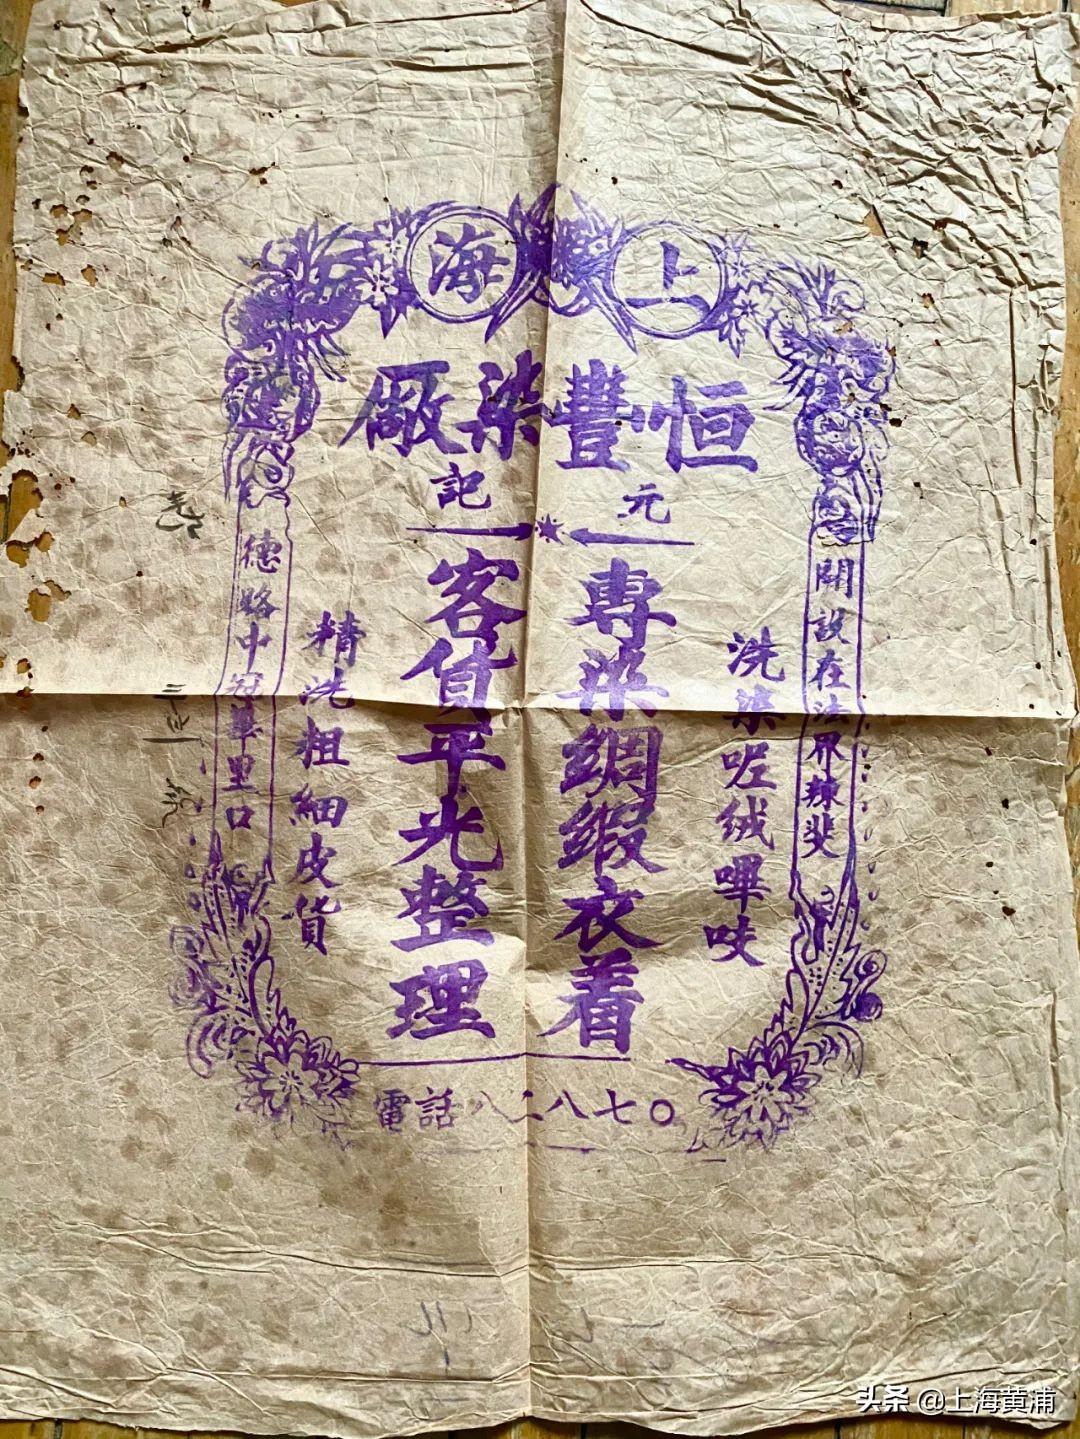 上海
恒豐染厰
元記
開設在法界辣斐
洗染呢絨嗶吱
專染綢緞衣着
客貨平光整理
精洗粗細皮貨
德路中冠華里口
電話八二八七〇
头条 @上海黄浦